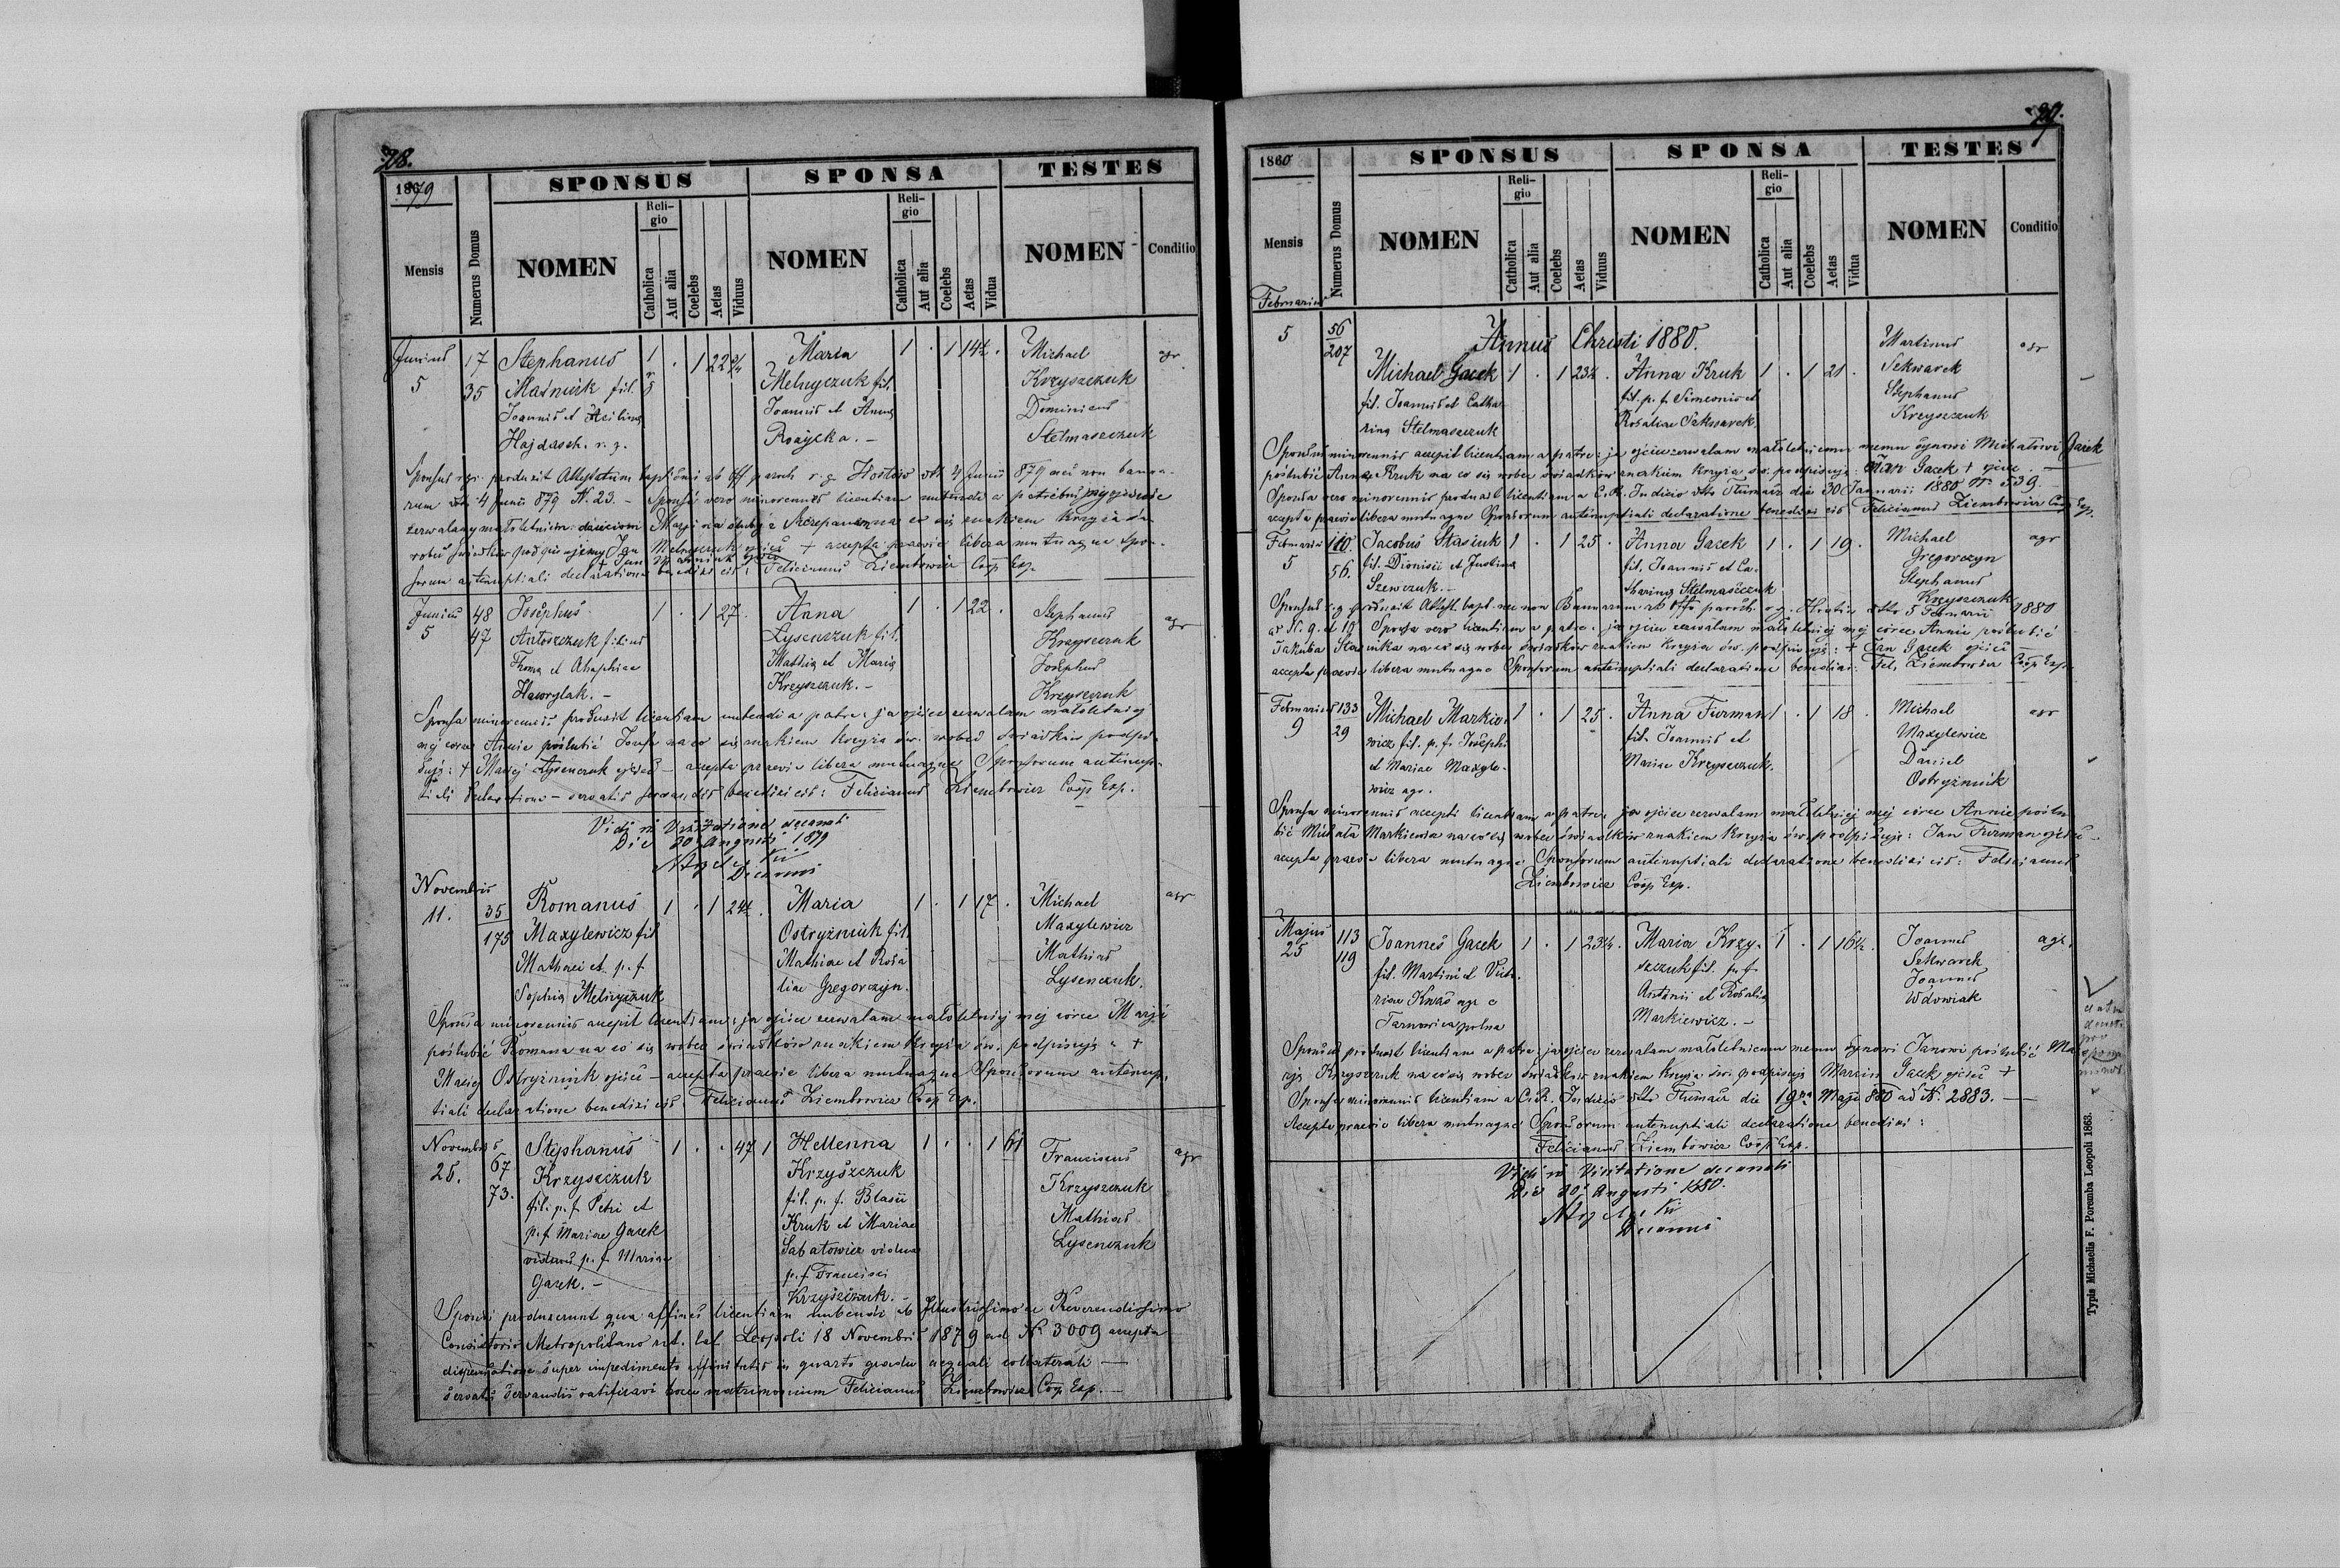 28.
1879
SPONSUS SPONSA TESTES
Mensis Numerus Domus NOMEN Religio Catholica Aut alia Coelebs Aetas Viduus NOMEN Religio Catholica Aut alia Coelebs Aetas Vidua NOMEN Conditio
Junius 17 Stephanus 1 . 1 22 Maria 1 . 1 14½ . Michael agr
5 35 fil. Melnyczuk fil. Krzyszczuk
Joannis et Joannis et Anna Dominicus
r. g. Rożycka. - Stelmaszczuk
Sponsus produxit Attestatum ab Off paroch r. g. 4 Junii 879 nec non banno-
rum 4 Junii 879 N. 23. - Sponsa vero minorennis licentiam
zezwalamy małoletniej Maryi na co się znakiem krzyża
Jan Melnyczuk ojciec + accepta praevie libera mutuaque Spon-
sorum antenuptiali declaratione benedixi eis: Felicianus Ziembowicz Coop Exp.
Junius 48 Josephus 1 . 1 27. Anna 1 . 1 22. Stephanus agr
5 47 Antoszczuk filius Lysenczuk fil. Krzyszczuk
Thoma et Mathia et Maria Josephus
Hawrylak. - Krzyszczuk. - Krzyszczuk
Sponsa minorennis produxit licentiam nubendi a patre: ja ojciec zezwalam małoletniej
mej corce Annie poślubić Josefa na co się znakiem krzyża św. wobec świadków podpi-
suję: + Maciej Lysenczuk ojciec - accepta praevie libera mutuaque Sponsorum antenup-
tiali declaratione - servatis servandis benedixi eis: Felicianus Ziembowicz Coop Exp.
Vidi in Visitatione decanali
Die 30 Augusti 1879
Decanus
Novembris
11. 35 Romanus 1 . 1 24½ . Maria 1 . 1 17 . Michael agr
175 Maxylewicz fil Ostryżniuk fil. Maxylewicz
Mathaei et p. f. Mathiae et Rosa Mathias
Sophia Melnyczuk liae Gregorczyn. Lysenczuk.
Sponsa minorennis accepit licentiam: ja ojciec zezwalam małoletniej mej córce Maryi
poślubić Romana na co się wobec świadków znakiem krzyża św. podpisuję +
Maciej Ostryżniuk ojciec - accepta praevie libera mutuaque Sponsorum antenup-
tiali declaratione benedixi eis. Felicianus Ziembowicz Coop Exp.
Novembris 67 Stephanus 1 . . 47 1 Hellenna 1 . . 1 61 Franciscus agr
25. 73. Krzyszczuk Krzyszczuk Krzyszczuk
fil. p. f. Petri et fil. p. f. Blasii Mathias
p. f. Mariae Gacek Kruk et Mariae Lysenczuk
viduus p. f. Mariae Sabatowicz vidua
Gacek. - p. f. Francisci
Krzyszczuk. -
Sponsi produxerunt qua affines licentiam nubendi ab Illustrissimo ac Reverendissimo
Consistorio Metropolitano rit. lat. Leopoli 18 Novembris 1879 ad N. 3009 accepta
dispensatione super impedimento affinitatis in quarto gradu aequali collaterali —
servatis servandis ratificavi hocce matrimonium Felicianus Ziembowicz Coop. Exp. —
29.
1880
SPONSUS SPONSA TESTES
Mensis Numerus Domus NOMEN Religio Catholica Aut alia Coelebs Aetas Viduus NOMEN Religio Catholica Aut alia Coelebs Aetas Vidua NOMEN Conditio
Februarius
Annus Christi 1880.
5 56 Martinus agr
207 Michael Gacek 1 . 1 23½ . Anna Kruk 1 . 1 21 . Sekwarek
fil. Joannis et Catha- fil. p. f. Simeonis et Stephanus
rina Stelmaszczuk Rosaliae Krzyszczuk
Sponsus minorennis accepit licentiam a patre: ja ojciec zezwalam małoletniemu memu synowi Michałowi Gacek
poślubić Annę Kruk na co się wobec świadków znakiem krzyża św. podpisuję: Jan Gacek + ojciec. —
Sponsa vero minorennis produxit licentiam a C. R. Judicio dtto Tłumacz die 30 Januarii 1880 N. 539. —
accepta praevie libera mutuaque Sponsorum antenuptiali declaratione benedixi eis Felicianus Ziembowicz Coop Exp.
Februarii 110. Jacobus Stasiuk 1 . 1 25 . Anna Gacek 1 . 1 19 . Michael agr
5 56. fil. Dionisii et Justina fil. Joannis et Ca- Gregorczyn
Szewczuk. - tharina Stelmaszczuk Stephanus
Krzyszczuk
Sponsus r. g. produxit Attest. bapt. nec non Bannorum ab Offo paroch. r. g. dtto 5 Februarii 1880
N. 9. et 19 Sponsa vero licentiam a patre: ja ojciec zezwalam małoletniej mej córce Annie poślubić
Jakuba Stasiuka na co się wobec świadków znakiem krzyża św. podpisuję: + Jan Gacek ojciec —
accepta praevie libera mutuaque Sponsorum antenuptiali declaratione benedixi: Fel. Ziembowicz Coop Exp.
Februarius 133 Michael Markie- 1 . 1 25 . Anna Furman 1 . 1 18 . Michael agr
9 29 wicz fil. p. f. Josephi fil. Joannis et Maxylewicz
et Mariae Maxyle- Mariae Krzyszczuk. Daniel
wicz agr. Ostryżniuk
Sponsa minorennis accepit licentiam a patre: ja ojciec zezwalam małoletniej mej córce Annie poślu-
bić Michała Markiewicza na co się wobec świadków znakiem krzyża św. podpisuję: Jan Furman ojciec -
accepta praevie libera mutuaque Sponsorum antenuptiali declaratione benedixi eis: Felicianus
Ziembowicz Coop Exp.
Majus 113 Joannes Gacek 1 . 1 23¼ . Maria Krzy- 1 . 1 16½ . Joannes agr.
25 119 fil. Martini et Victo- szczuk fil. p. f. Sekwarek
riae Kwas agr e Antonii et Rosalia Joannes
Tarnowica polna Markiewicz. - Wdowiak
Sponsus produxit licentiam a patre: ja ojciec zezwalam małoletniemu memu synowi Janowi poślubić Ma-
ryę Krzyszczuk na co się wobec świadków znakiem krzyża św. podpisuję Marcin Gacek ojciec +
Sponsa minorennis licentiam a C. R. Judicio dtto Tłumacz die 19na Maji 880 ad N. 2883. —
Accepta praevie libera mutuaque Sponsorum antenuptiali declaratione benedixi:
Felicianus Ziembowicz Coop Exp.
Vidi in Visitatione decanali
Die 30 Augusti 1880.
Decanus
Typis Michaelis F. Poremba Leopoli 1863.